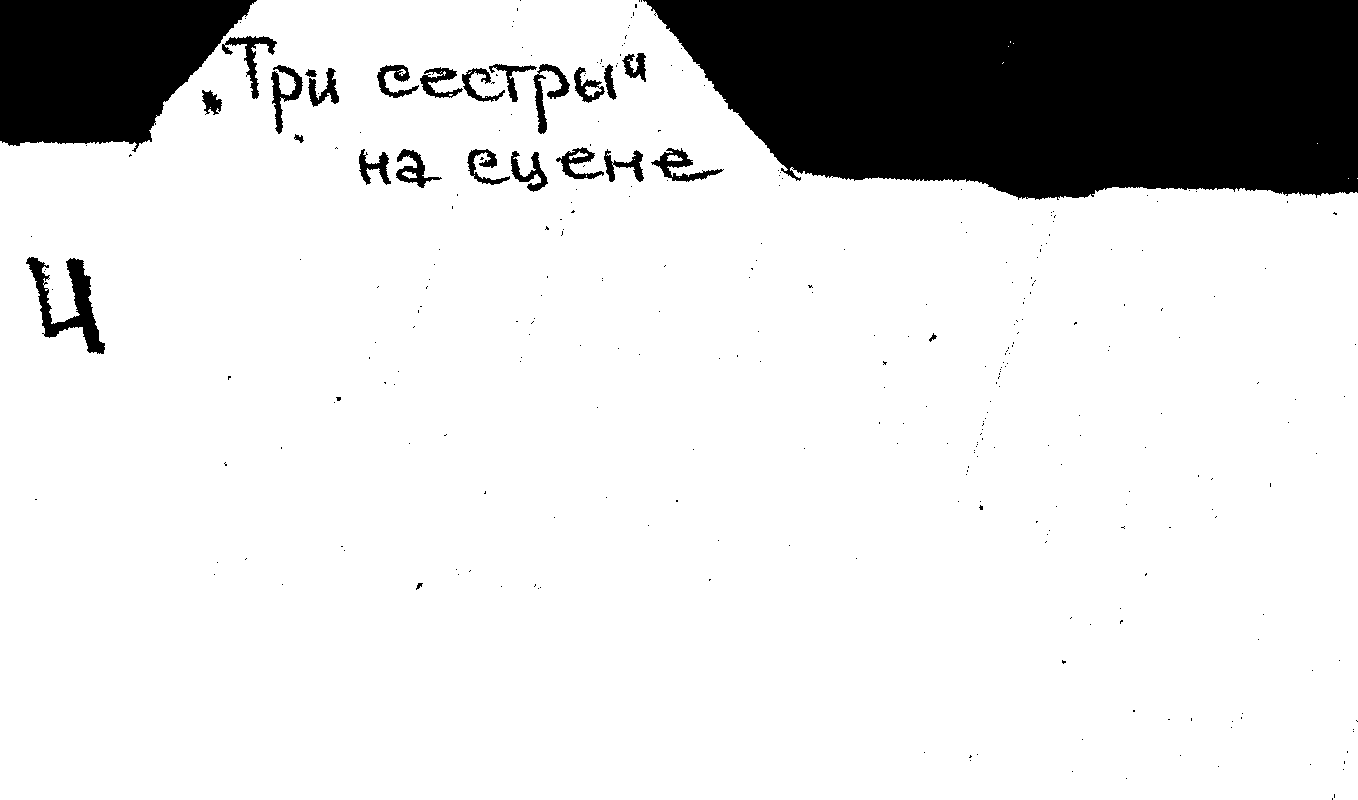 „Три сестры“
на сцене
4